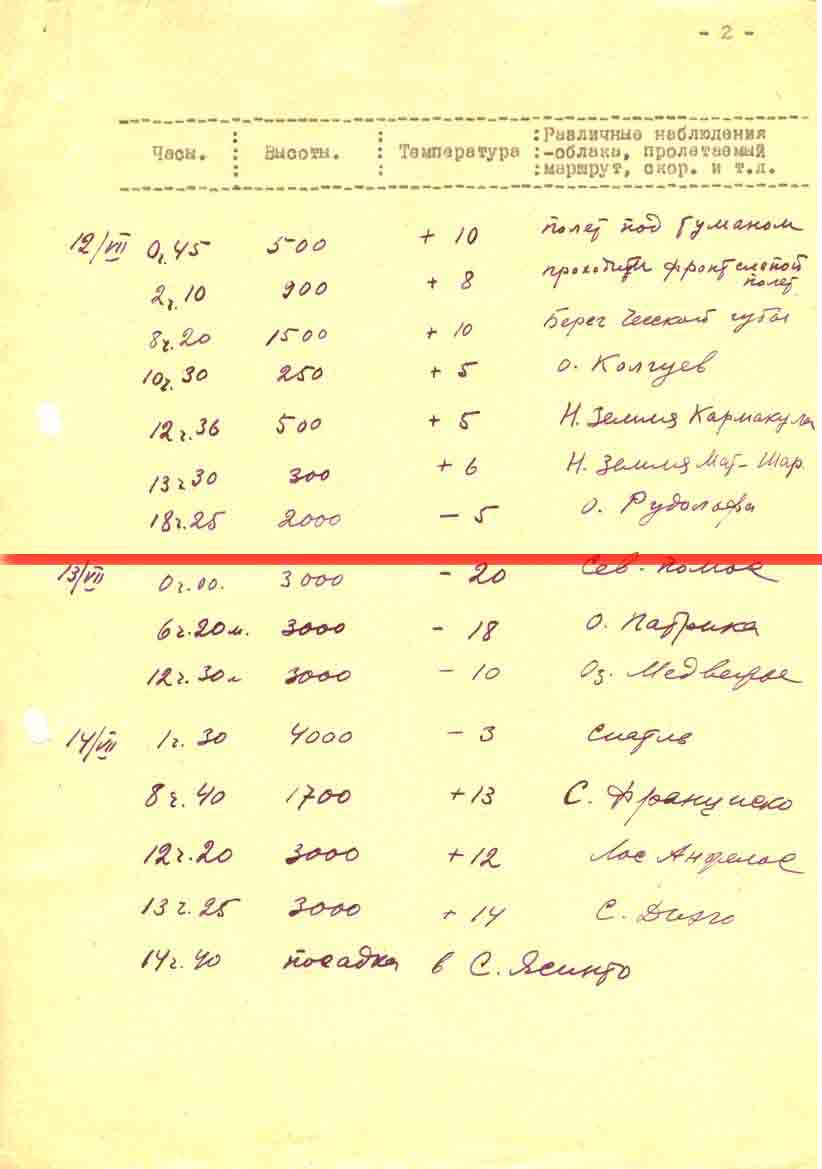 - 2 -
Часы. : Высоты. : Температура : Различные наблюдения
-облака, пролетаемый
маршрут, скор. и т.д.
12/VII 0ч.45 500 + 10 полет под туманом
2ч.10 900 + 8 фронт слепой
полет
8ч.20 1500 + 10 Берег Чешской губы
10ч.30 250 + 5 о. Колгуев
12ч.36 500 + 5 Н. Земля Кармакулы
13ч30 300 + 6 Н. Земля Мат-Шар.
18ч.25 2000 - 5 о. Рудольфа
13/VII 0ч.00. 3000 - 20 Сев. полюс
6ч.20м. 3000 - 18 о. Патрика
12ч.30м 3000 - 10 Оз. Медвежье
14/VII 1ч.30 4000 - 3 Сиатль
8ч.40 1700 +13 С. Франциско
12ч.20 3000 +12 Лос Анжелос
13ч.25 3000 + 14 С. Диэго
14ч.40 посадка в С. Ясинто